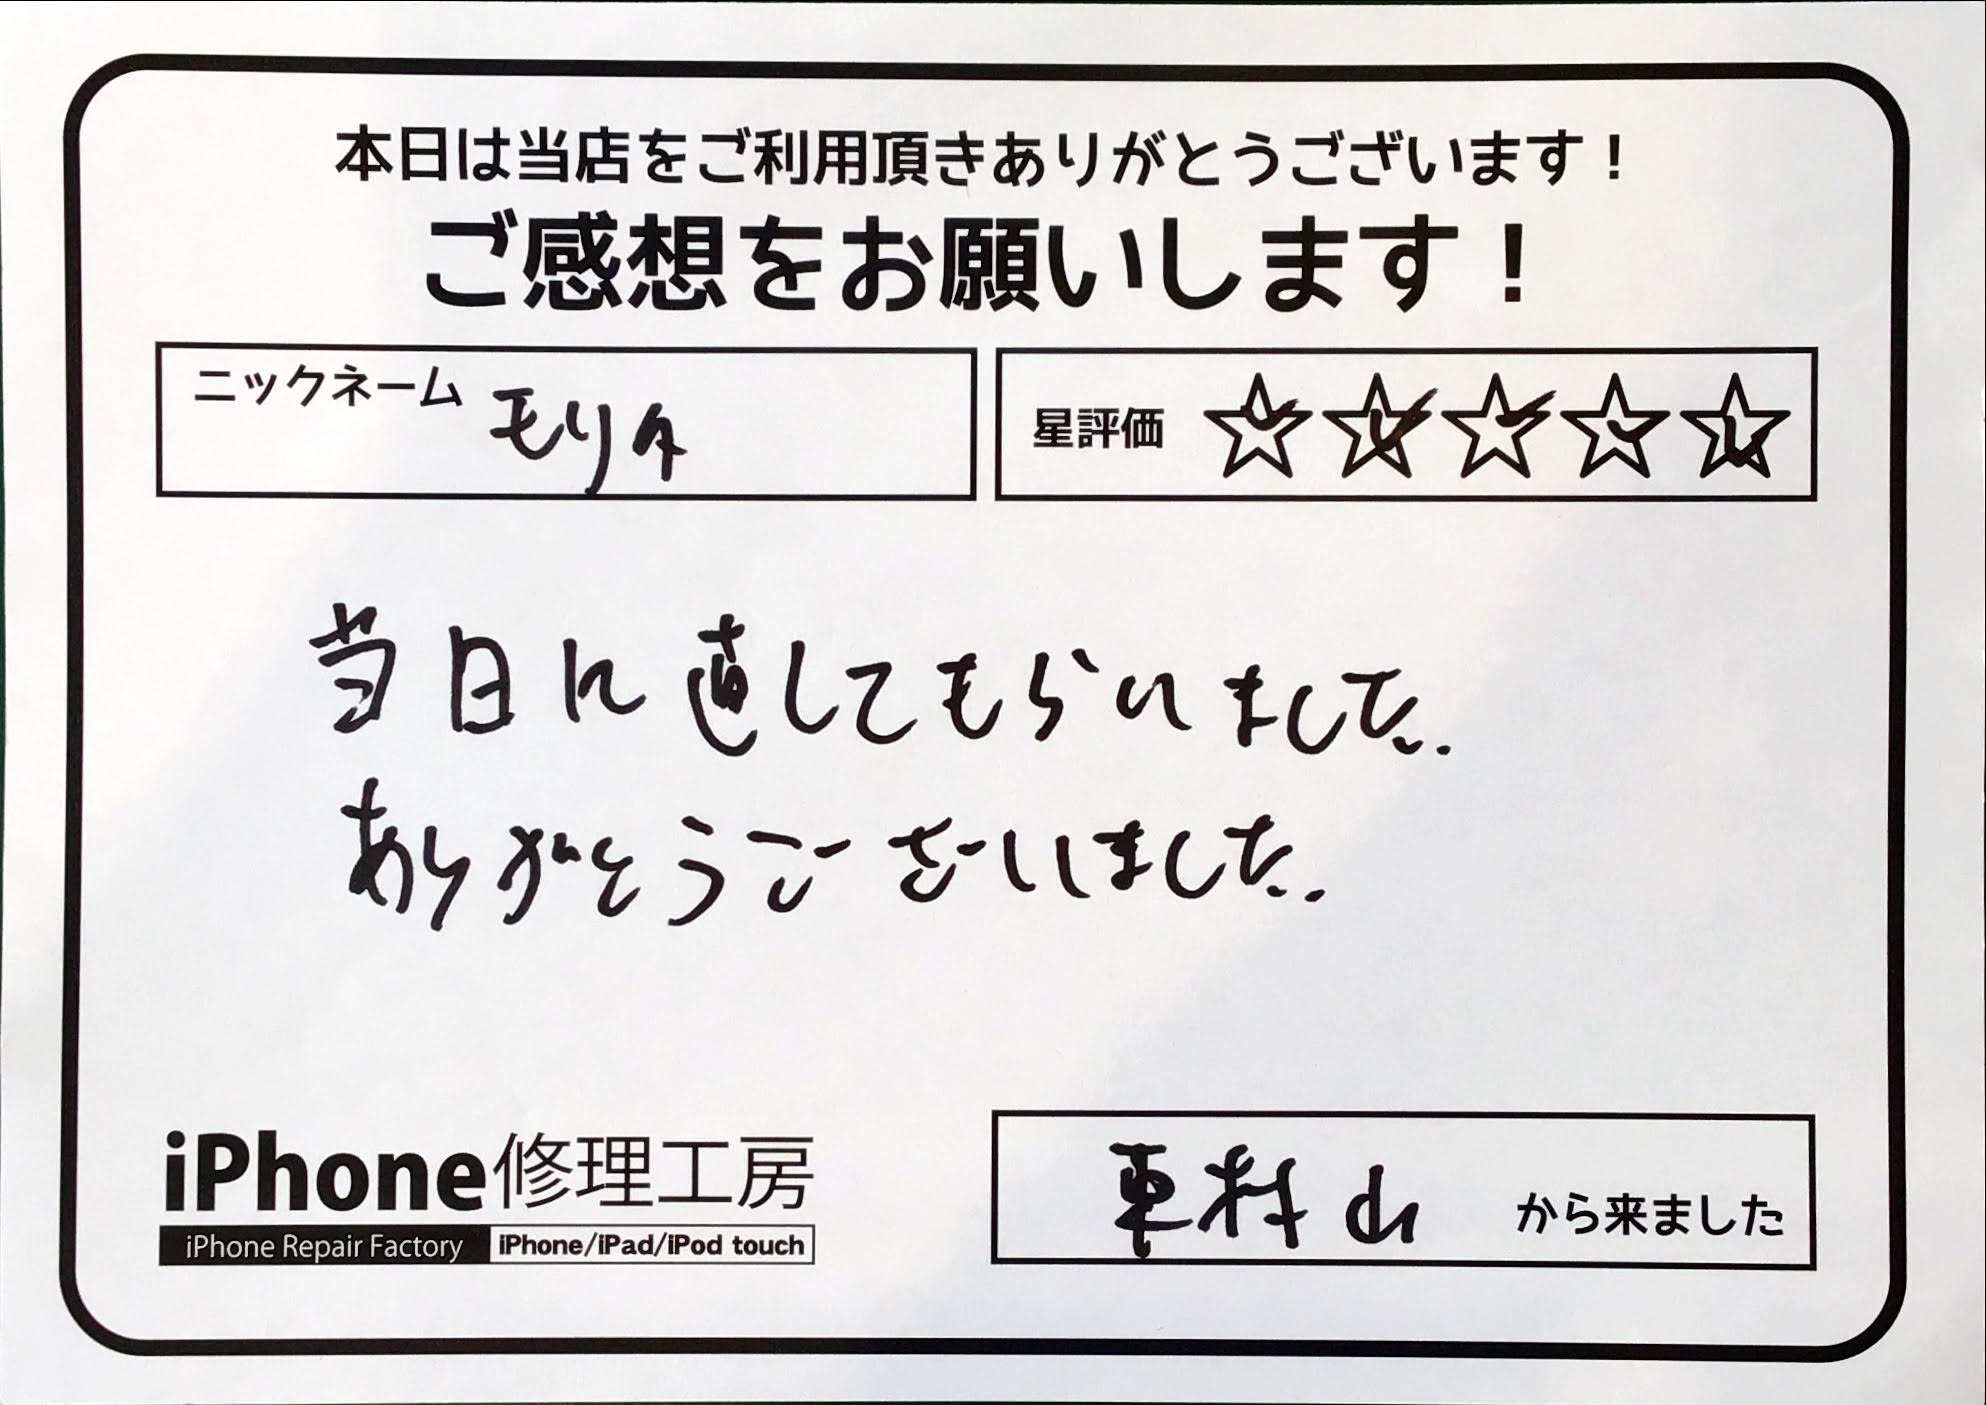 本日は当店をご利用頂きありがとうございます！
ご感想をお願いします！
ニックネーム モリタ
星評価 ☆☆☆☆☆
当日に直してもらいました.
ありがとうございました.
iPhone修理工房
iPhone Repair Factory iPhone/iPad/iPod touch
東村山 から来ました